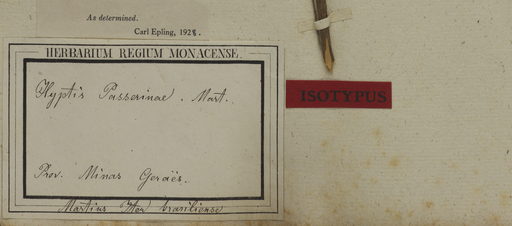 As determined.
Carl Epling, 1928.
HERBARIUM REGIUM MONACENSE.
Hyptis Passerinae. Mart.
ISOTYPUS
Prov. Minas Geraës.
Martius Iter brasiliense